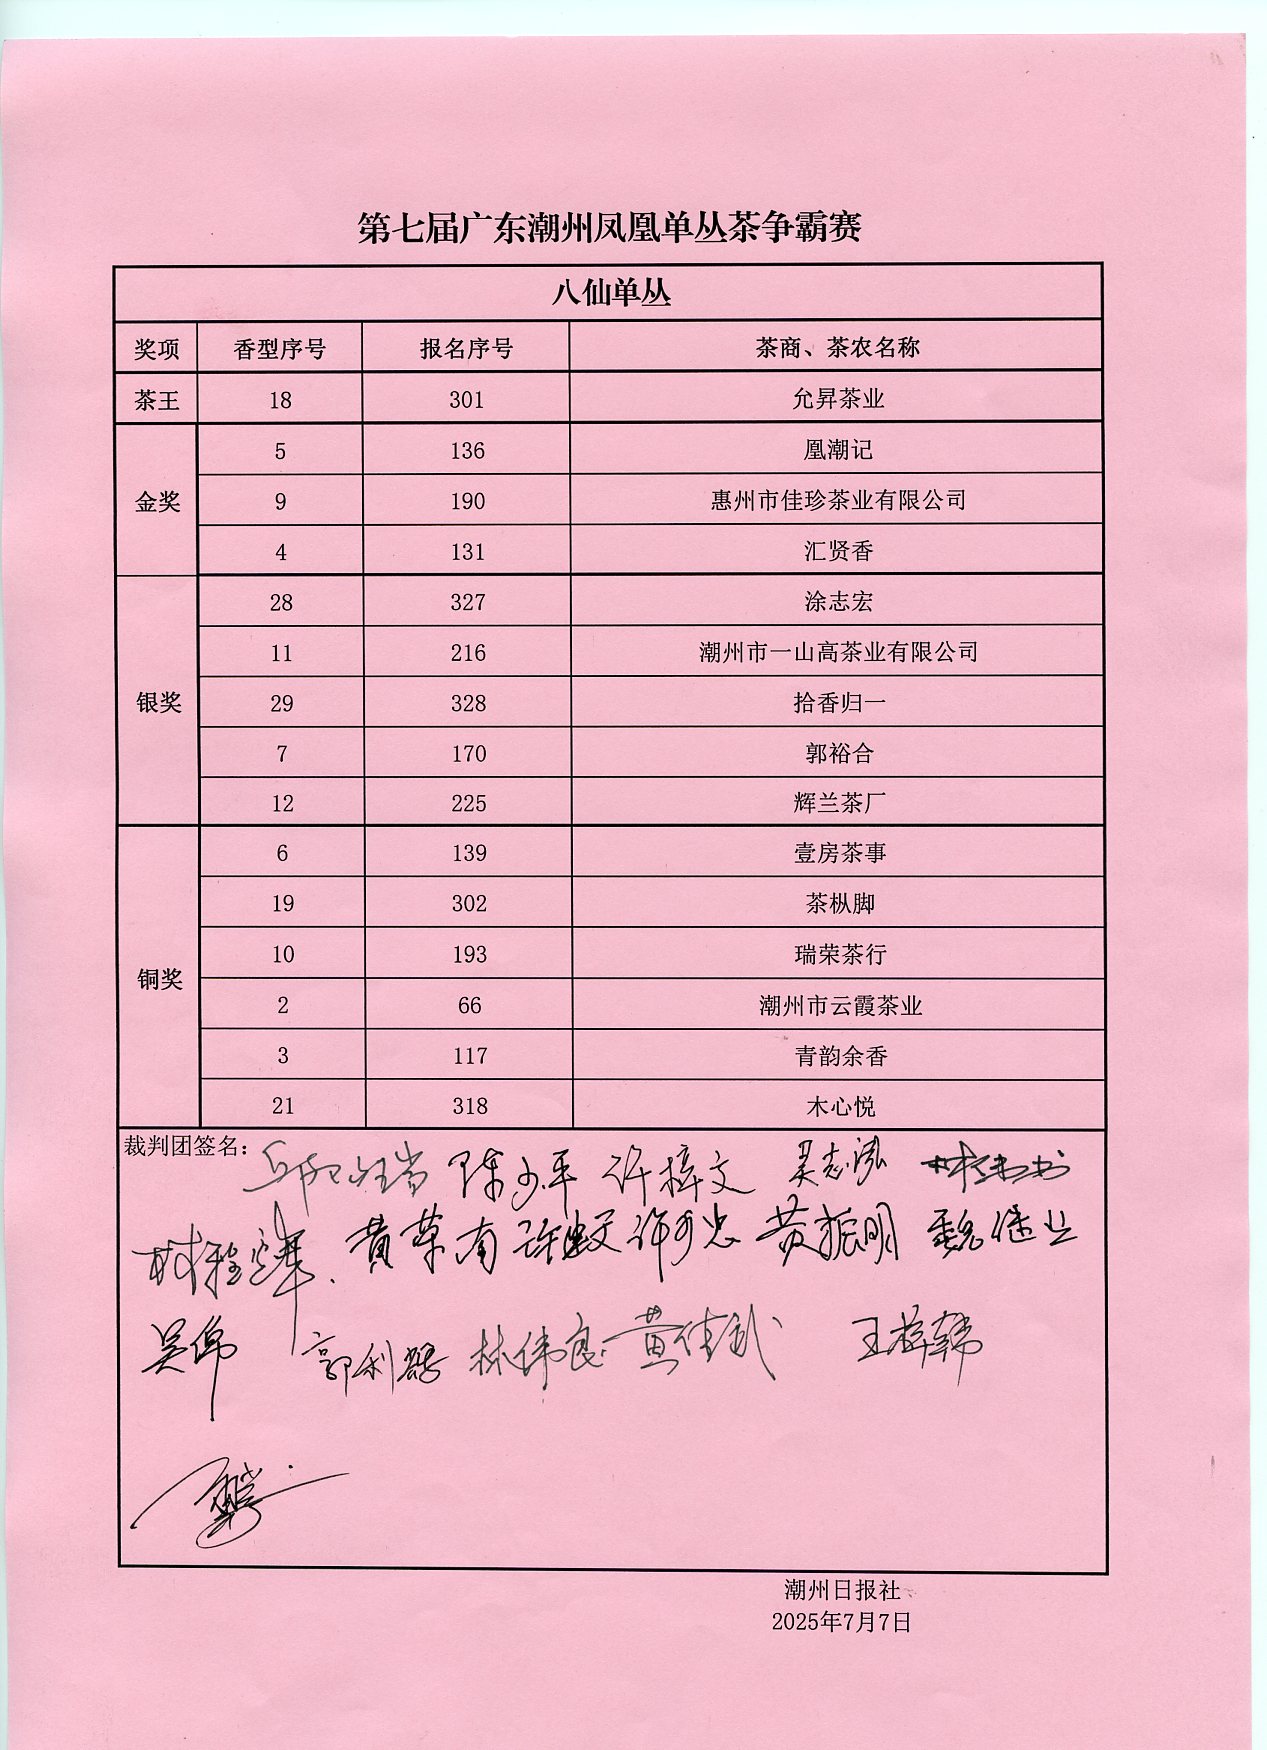 第七届广东潮州凤凰单丛茶争霸赛
八仙单丛
奖项 香型序号 报名序号 茶商、茶农名称
茶王 18 301 允昇茶业
金奖 5 136 凰潮记
9 190 惠州市佳珍茶业有限公司
4 131 汇贤香
银奖 28 327 涂志宏
11 216 潮州市一山高茶业有限公司
29 328 拾香归一
7 170 郭裕合
12 225 辉兰茶厂
铜奖 6 139 壹房茶事
19 302 茶枞脚
10 193 瑞荣茶行
2 66 潮州市云霞茶业
3 117 青韵余香
21 318 木心悦
裁判团签名： 陈少平 许梓文 吴志泓
黄荣南 黄振明 魏继业
吴伟 林伟良 黄佳武 王梓韩
潮州日报社
2025年7月7日